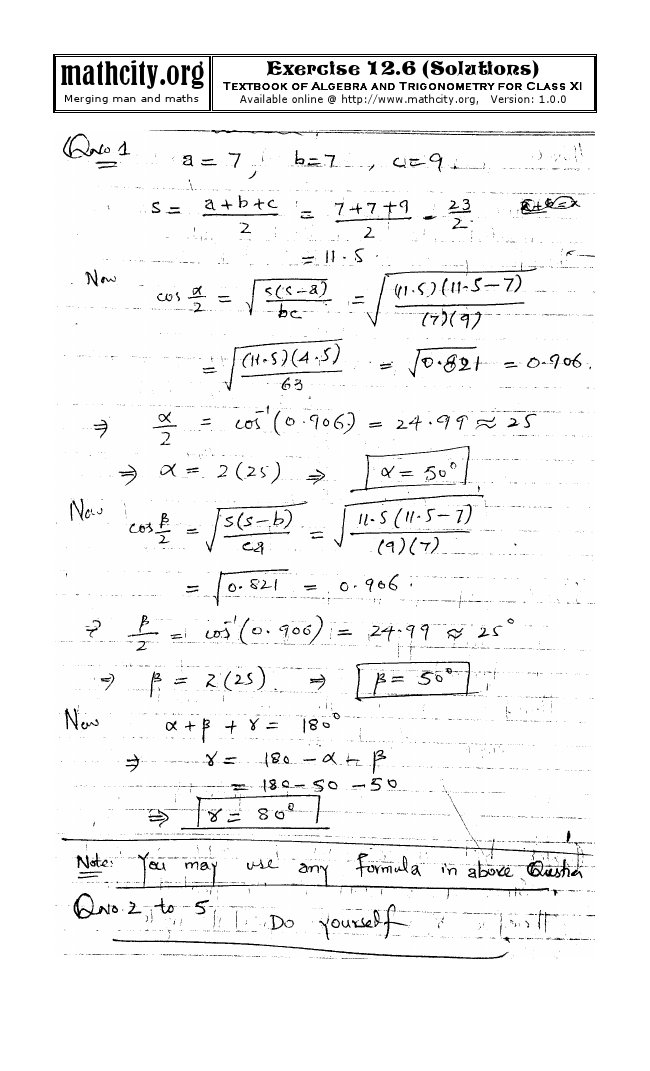 mathcity.org
Merging man and maths
Exercise 12.6 (Solutions)
TEXTBOOK OF ALGEBRA AND TRIGONOMETRY FOR CLASS XI
Available online @ http://www.mathcity.org, Version: 1.0.0
Qno 1 a = 7, b=7, c=9.
s = a+b+c/2 = 7+7+9/2 = 23/2
= 11.5
Now cos α/2 = √(s(s-a)/bc) = √((11.5)(11.5-7)/(7)(9))
= √((11.5)(4.5)/63) = √0.821 = 0.906.
⇒ α/2 = cos⁻¹(0.906) = 24.99 ≈ 25
⇒ α = 2(25) ⇒ α = 50°
Now cos β/2 = √(s(s-b)/ca) = √(11.5(11.5-7)/(9)(7))
= √0.821 = 0.906.
⇒ β/2 = cos⁻¹(0.906) = 24.99 ≈ 25°
⇒ β = 2(25). ⇒ β = 50°
Now α+β+γ = 180°
⇒ γ = 180 - α - β
= 180 - 50 - 50
⇒ γ = 80°
Note: You may use any formula in above Question
Qno. 2 to 5 Do yourself